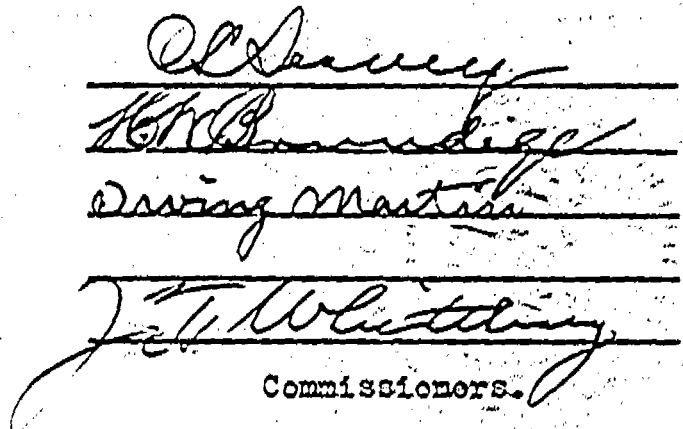 C L Seavey
H W Brundige
Irving Martin
J. T. Whittlesey
Commissioners.